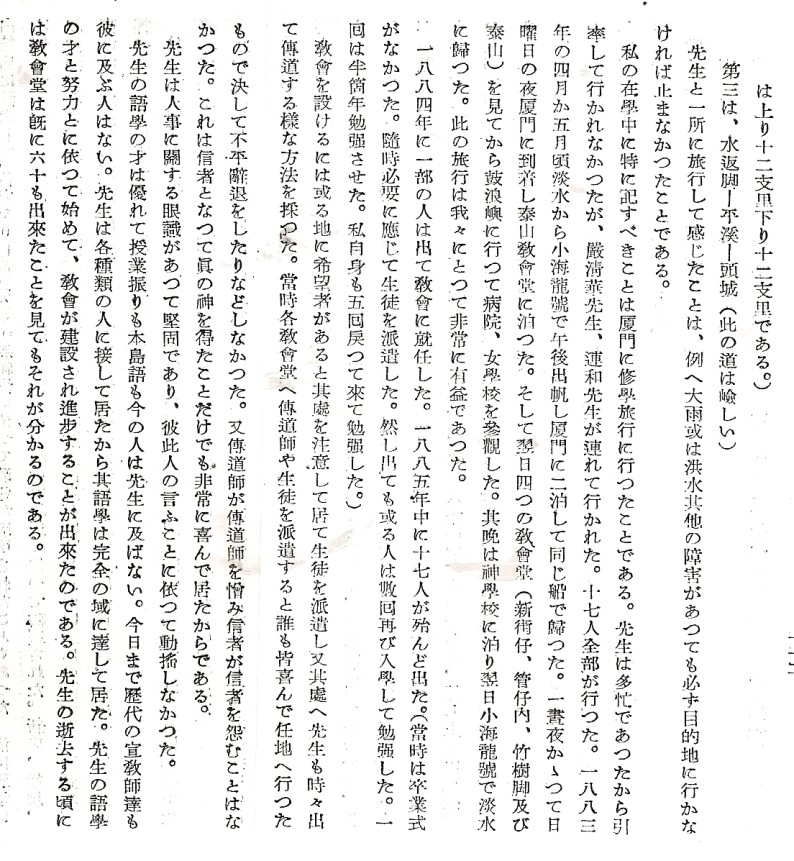 は上り十二支里下り十二支里である。）
第三は、水返脚ー平溪ー頭城（此の道は嶮しい）
先生と一所に旅行して感じたことは、例へ大雨或は洪水其他の障害があつても必ず目的地に行かな
ければ止まなかつたことである。
私の在學中に特に記すべきことは厦門に修學旅行に行つたことである。先生は多忙であつたから引
率して行かれなかつたが、嚴清華先生、連和先生が連れて行かれた。十七人全部が行つた。一八八三
年の四月か五月頃淡水から小海龍號で午後出帆し厦門に二泊して同じ船で歸つた。一晝夜かゝつて日
曜日の夜厦門に到着し泰山敎會堂に泊つた。そして翌日四つの敎會堂（新街仔、管仔内、竹樹脚及び
泰山）を見てから鼓浪嶼に行つて病院、女學校を參觀した。其晩は神學校に泊り翌日小海龍號で淡水
に歸つた。此の旅行は我々にとつて非常に有益であつた。
一八八四年に一部の人は出て敎會に就任した。一八八五年中に十七人が殆んど出た。（當時は卒業式
がなかつた。隨時必要に應じて生徒を派遣した。然し出ても或る人は數回再び入學して勉强した。一
回は半箇年勉强させた。私自身も五回戻つて來て勉强した。）
敎會を設けるには或る地に希望者があると其處を注意して居て生徒を派遣し又其處へ先生も時々出
て傳道する樣な方法を採つた。當時各敎會堂へ傳道師や生徒を派遣すると誰も皆喜んで任地へ行つた
もので決して不平辭退をしたりなどしなかつた。又傳道師が傳道師を憎み信者が信者を怨むことはな
かつた。これは信者となつて眞の神を得たことだけでも非常に喜んで居たからである。
先生は人事に關する眼識があつて堅固であり、彼此人の言ふことに依つて動搖しなかつた。
先生の語學の才は優れて授業振りも本島語も今の人は先生に及ばない。今日まで歷代の宣敎師達も
彼に及ぶ人はない。先生は各種類の人に接して居たから其語學は完全の域に達して居た。先生の語學
の才と努力とに依つて始めて、敎會が建設され進步することが出來たのである。先生の逝去する頃に
は敎會堂は旣に六十も出來たことを見てもそれが分かるのである。